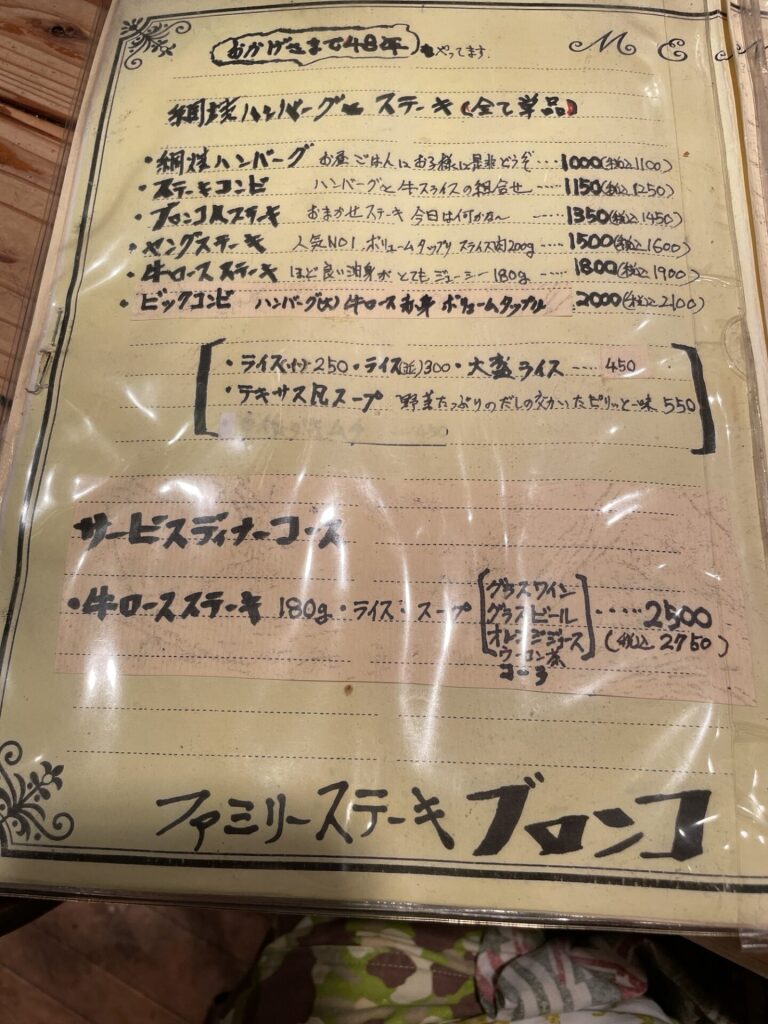 おかげさまで48年もやってます.
MEN
網焼ハンバーグとステーキ(全て単品)
・網焼ハンバーグ お昼ごはんにお子様に是非どうぞ・・・1000(税込1100)
・ステーキコンビ ハンバーグと牛スライスの組合せ・・・・1150(税込1250)
・ブロンコ風ステーキ おまかせステーキ 今日は何かな〜 ・・・・・1350(税込1450)
・ヤングステーキ 人気NO1 ボリュームタップリ スライス肉200g・・・1500(税込1600)
・牛ロースステーキ ほど良い油身がとてもジューシー180g・・・・1800(税込1900)
・ビックコンビ ハンバーグ(大) 牛ロース赤身 ボリュームタップル 2000(税込2100)
・ライス(小)250・ライス(並)300・大盛ライス・・・・450
・テキサス風スープ 野菜たっぷりのだしの効いたピリッと一味 550
サービスディナーコース
・牛ロースステーキ 180g・ライス・スープ
グラスワイン
グラスビール
オレンジジュース
ウーロン茶
コーラ
・・・・・2500
(税込2750)
ファミリーステーキ ブロンコ